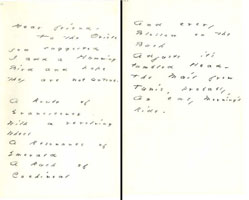 Dear friend.
To the Oriole
you suggested
I add a Humming
Bird and hope
they are not untrue.
A Route of
Evanescence
With a revolving
Wheel
A Resonance of
Emerald
A Rush of
Cochineal
And every
Blossom on the
Bush
Adjusts its
tumbled Head.
The Mail from
Tunis, probably,
An easy Morning's
Ride.